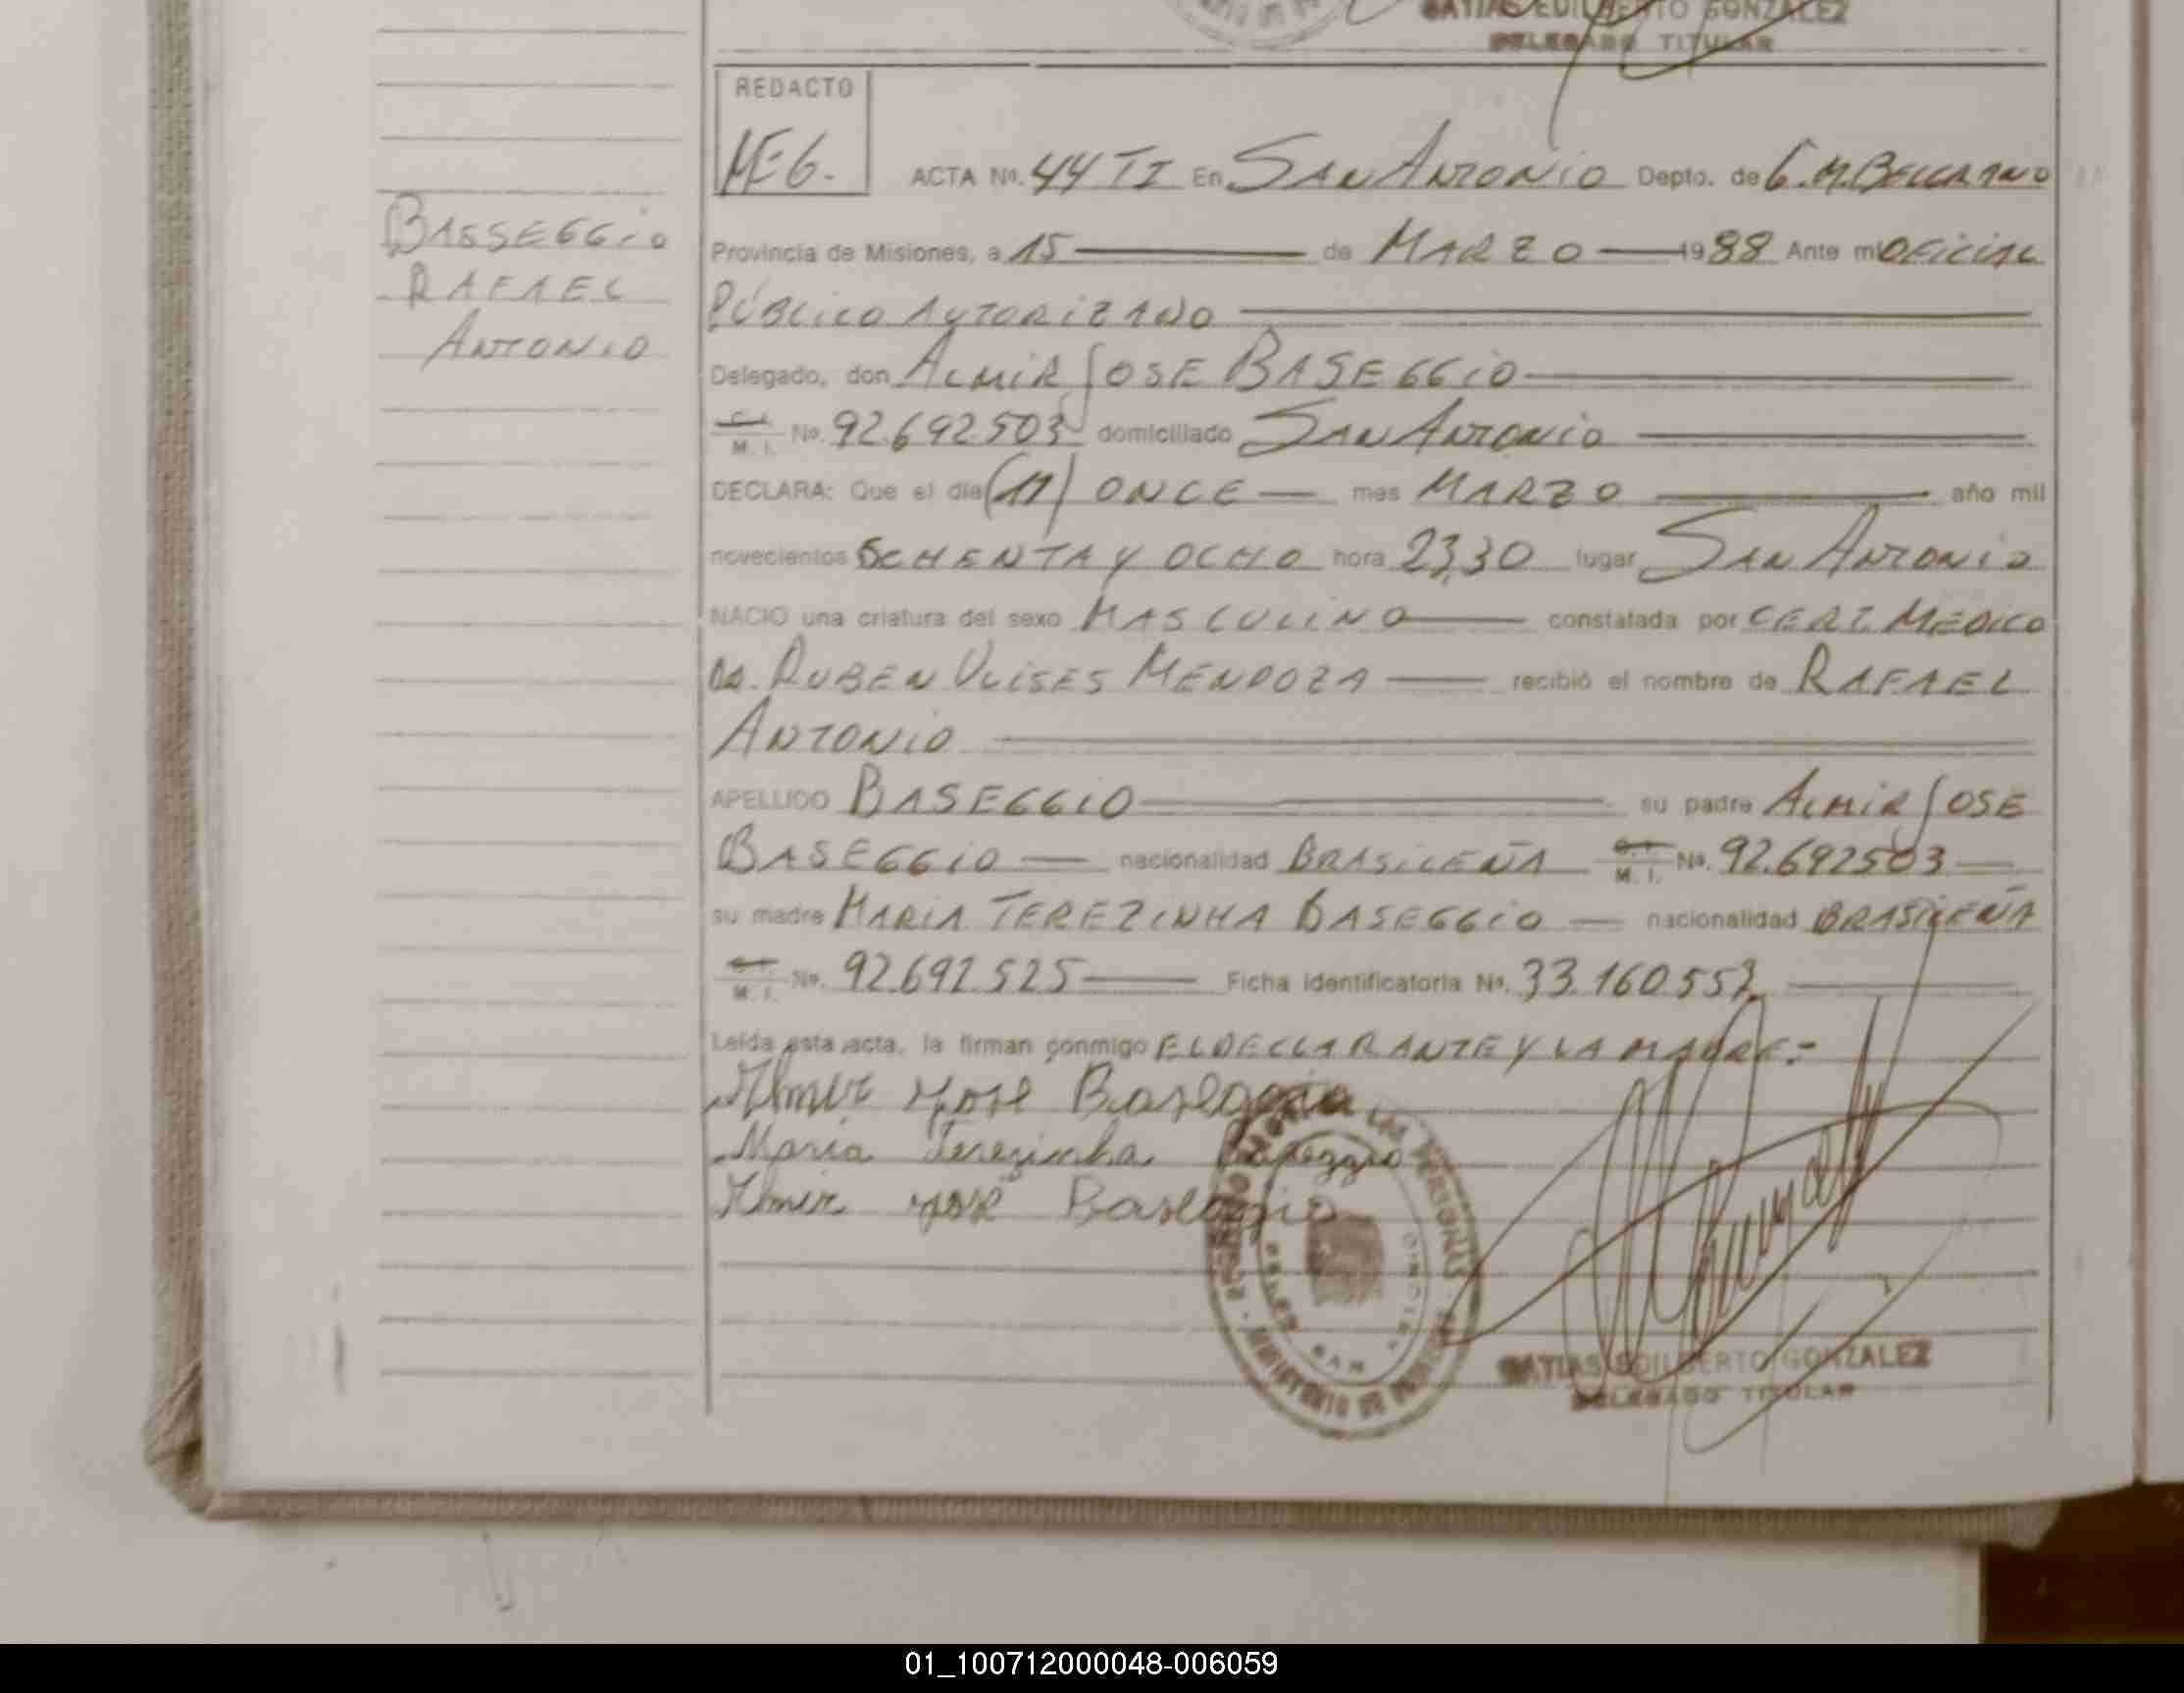 GONZALEZ
DELEGADO TITULAR
REDACTO
ACTA No. 44 TI En SAN ANTONIO Depto. de G.M. BELGRANO
BASSEGGIO
RAFAEL
ANTONIO
Provincia de Misiones, a 15 de MARZO 1988 Ante mi OFICIAL
PÚBLICO AUTORIZADO
Delegado, don ALMIR JOSE BASEGGIO
M. I. No. 92.692503 domiciliado SAN ANTONIO
DECLARA: Que el día (11) ONCE mes MARZO año mil
novecientos OCHENTA Y OCHO hora 23,30 lugar SAN ANTONIO
NACIO una criatura del sexo MASCULINO constatada por CERT MEDICO
DR. RUBEN ULISES MENDOZA recibió el nombre de RAFAEL
ANTONIO
APELLIDO BASEGGIO su padre ALMIR JOSE
BASEGGIO nacionalidad BRASILEÑA M. I. No. 92.692503
su madre MARIA TEREZINHA BASEGGIO nacionalidad BRASILEÑA
M. I. No. 92.692.525 Ficha identificatoria No. 33.160.557
Leída esta acta, la firman conmigo EL DECLARANTE Y LA MADRE.-
Almir Jose Baseggio
Maria Terezinha Baseggio
Almir José Baseggio
MATIAS EDILBERTO GONZALEZ
DELEGADO TITULAR
01_100712000048-006059